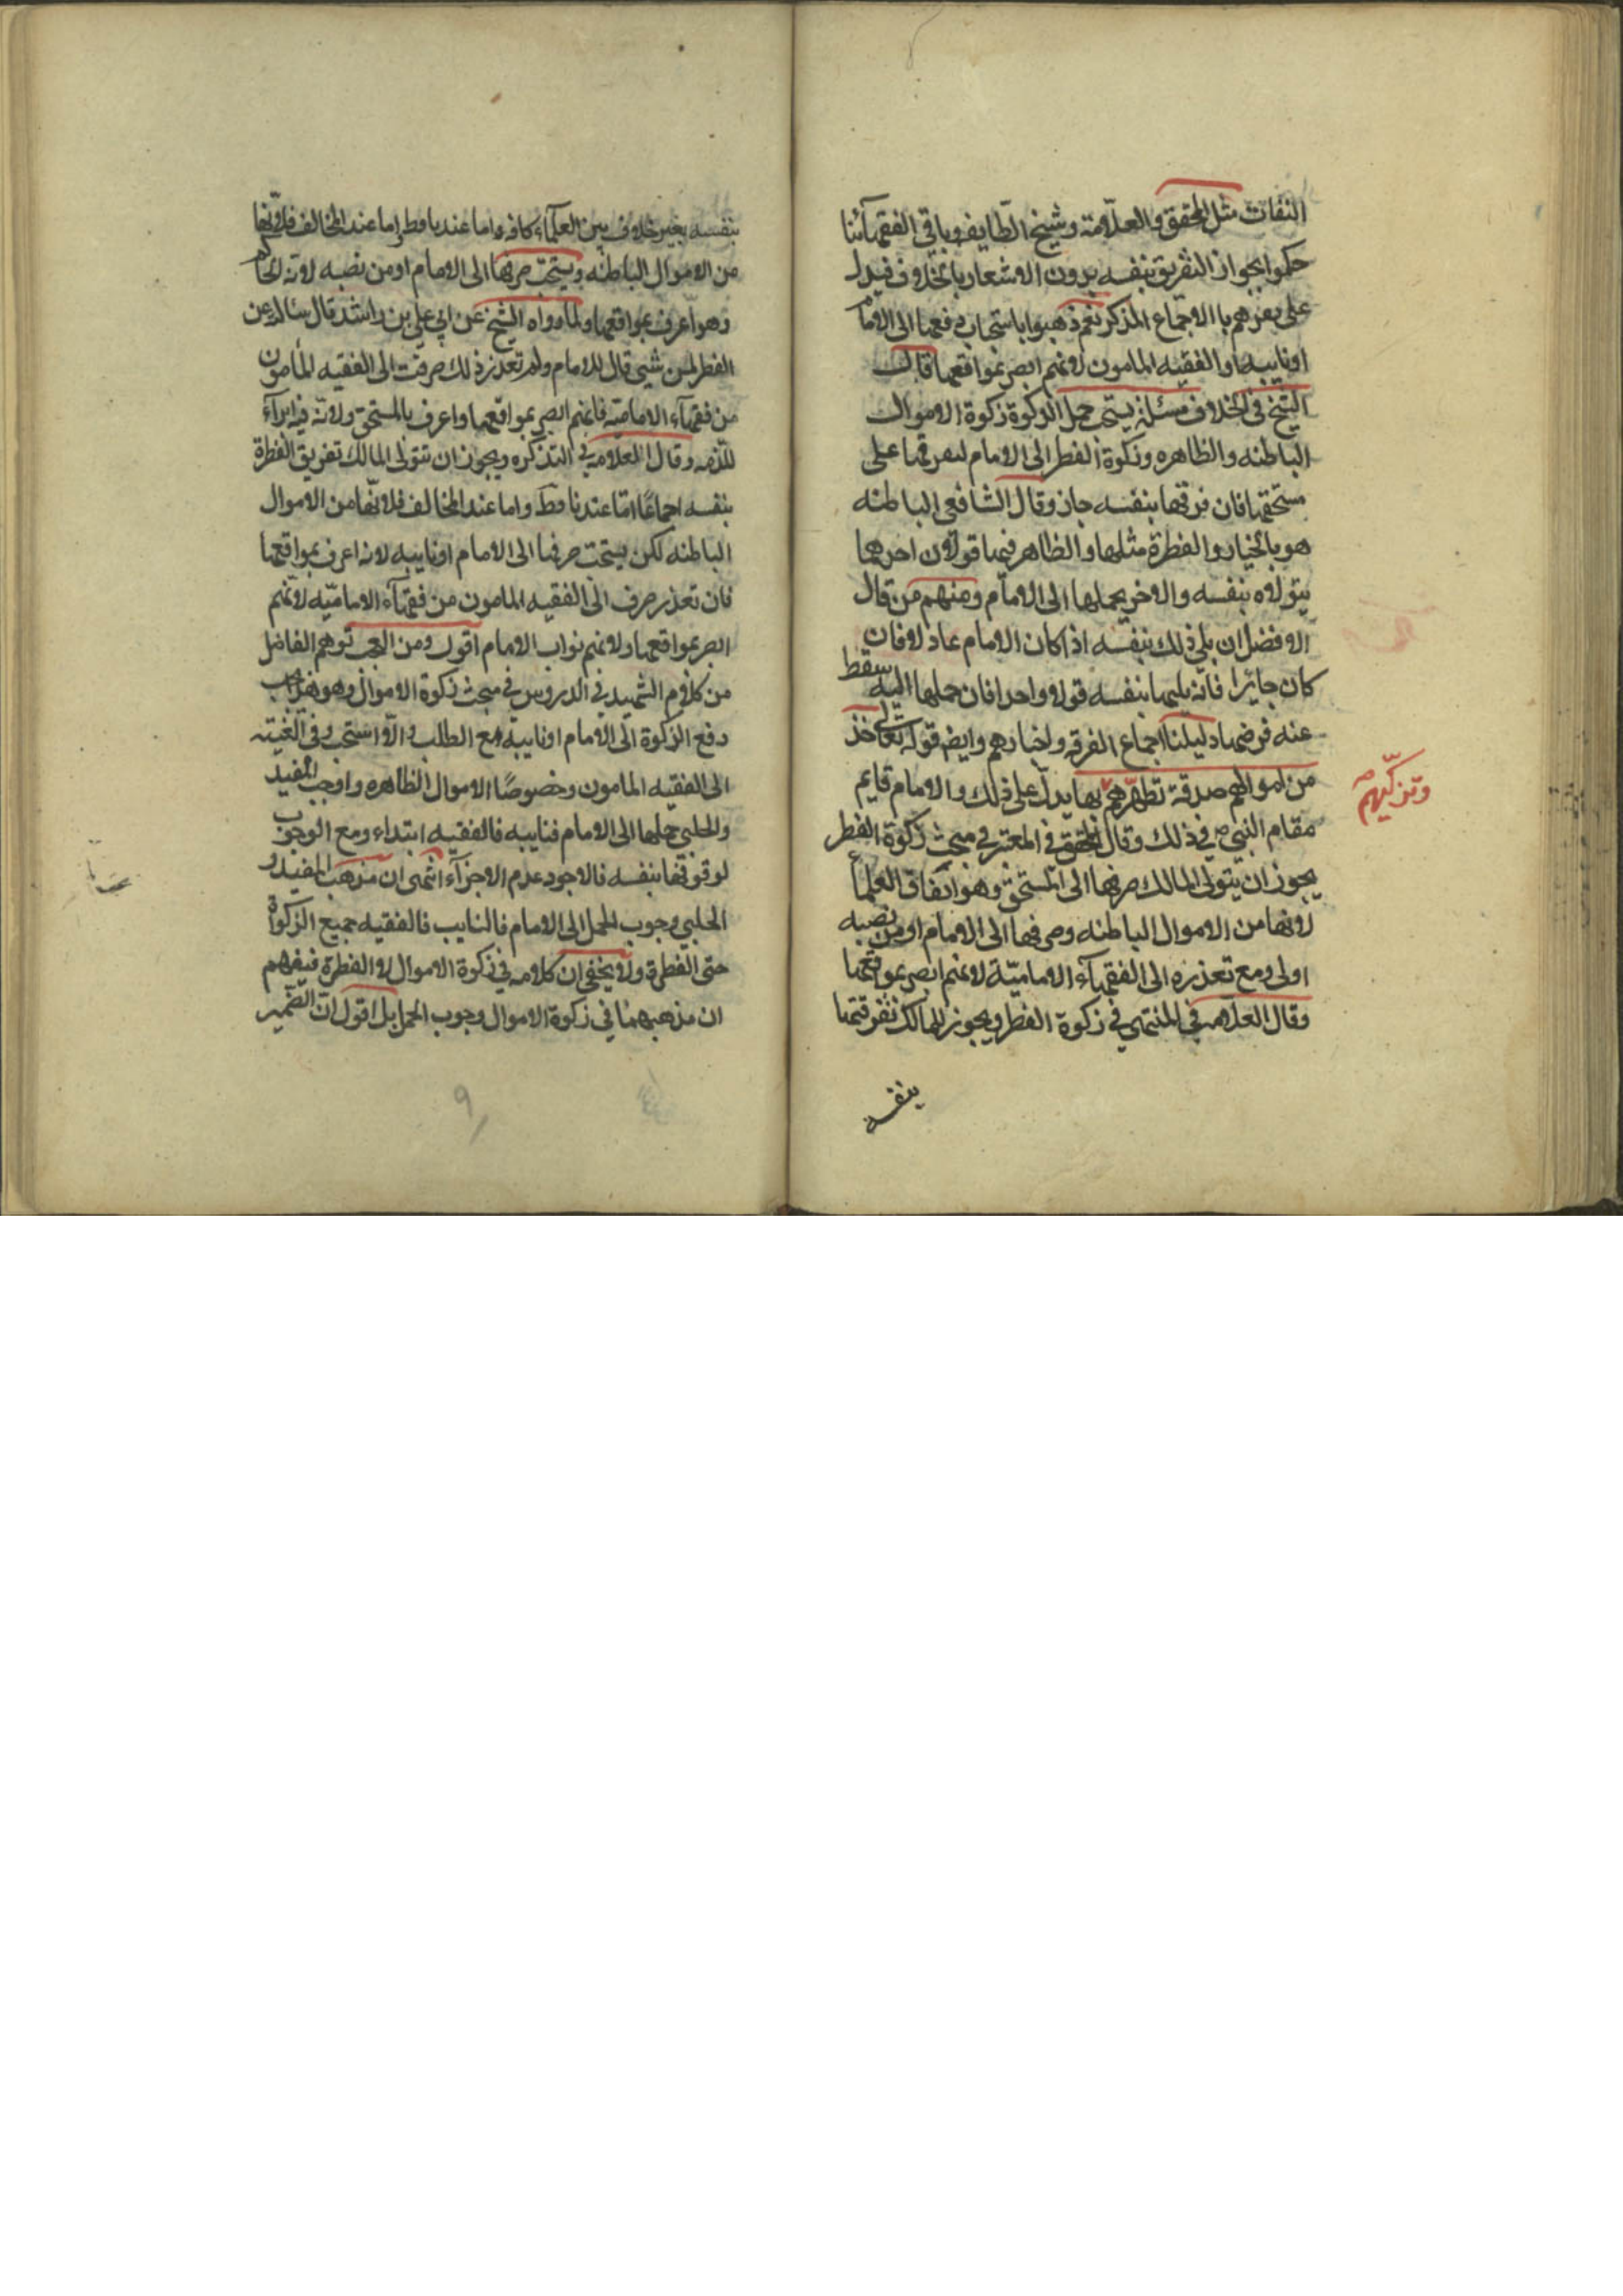 الثقات مثل المحقق والعلّامة وشيخ الطّايفه وباقي الفقهآئنا
حكموا بجواز التفريق بنفسه بدون الاشعار بالخلاف فيدل
على بعزهم باالاجماع المذكر نعم ذهبوا باستحباب دفعها الى الامام
او نايبه او الفقيه المامون لانهم ابصر بمواقعها قال
الشيخ فى الخلاف مسئلة يستحب حمل الزكوة زكوة الاموال
الباطنه والظاهره وزكوة الفطر الى الامام ليفرقها على
مستحقها فان فرقها بنفسه جاز وقال الشافعى الباطنه
هو بالخيار والفطرة مثلها والظاهر فيها قولان احدهما
يتولاه بنفسه والاخر يحملها الى الامام ومنهم من قال
الافضل ان يلى ذلك بنفسه اذا كان الامام عادلا فان
كان جايرا فانه يليها بنفسه قولا واحدا فان حملها اليه سقط
عنه فرضها دليلنا اجماع الفرقه واخبارهم وايضا قوله تعالى خذ
من اموالهم صدقة تطهّرهم بها يدلّ على ذلك والامام قايم
وتزكّيهم صح
مقام النبيّ ص في ذلك وقال المحقق في المعتبر في مبحث زكوة الفطر
يجوز ان يتولى المالك صرفها الى المستحق وهو اتفاق العلمآ
لانها من الاموال الباطنه وصرفها الى الامام او من نصبه
اولى ومع تعذره الى الفقهآء الاماميّة لانهم ابصر بمواقعها
وقال العلامه في المنتهى في زكوة الفطر ويجوز للمالك تفرقتها
بنفسه
بنفسه بغير خلاف بين العلمآء كافه واما عندنا فط واما عند المخالف فلانّها
من الاموال الباطنه ويستحبّ صرفها الى الامام او من نصبه لانه الحاكم
وهو اعرف بمواقعها ولما رواه الشيخ عن ابي علي بن راشد قال سالته عن
الفطر لمن شيى قال للامام ولو تعذر ذلك صرفت الى الفقيه المأمون
من فقهآء الاماميّه فانهم ابصر بمواقعها واعرف بالمستحق ولانّه فيه ابرآء
للذمه وقال العلامه في التذكره ويجوز ان تتولى المالك تفريق الفطرة
بنفسه اجماعًا امّا عندنا فظ واما عند المخالف فلانّها من الاموال
الباطنه لكن يستحب صرفها الى الامام او نايبه لانه اعرف بمواقعها
فان تعذر صرف الى الفقيه المامون من فقهآء الاماميّه لانّهم
ابصر بمواقعها ولانهم نواب الامام اقول ومن العجب توهم الفاضل
من كلام الشهيد في الدروس في مبحث زكوة الاموال وهو هذا يجب
دفع الزكوة الى الامام او نايبه مع الطلب والّا استحب وفى الغيبته
الى الفقيه المامون وخصوصًا الاموال الظاهره واوجب المفيد
والحلبي حملها الى الامام فنايبه فالفقيه ابتداء ومع الوجوب
لو فرّقها بنفسه فالاجود عدم الاجزآء انتهى ان مذهب المفيد و
الحلبي وجوب الحمل الى الامام فالنايب فالفقيه جميع الزكوة
حتى الفطرة ولا يخفى ان كلامه في زكوة الاموال لا الفطرة فيفهم
ان مذهبهما في زكوة الاموال وجوب الحمل بل اقول انّ الضّمير
٩